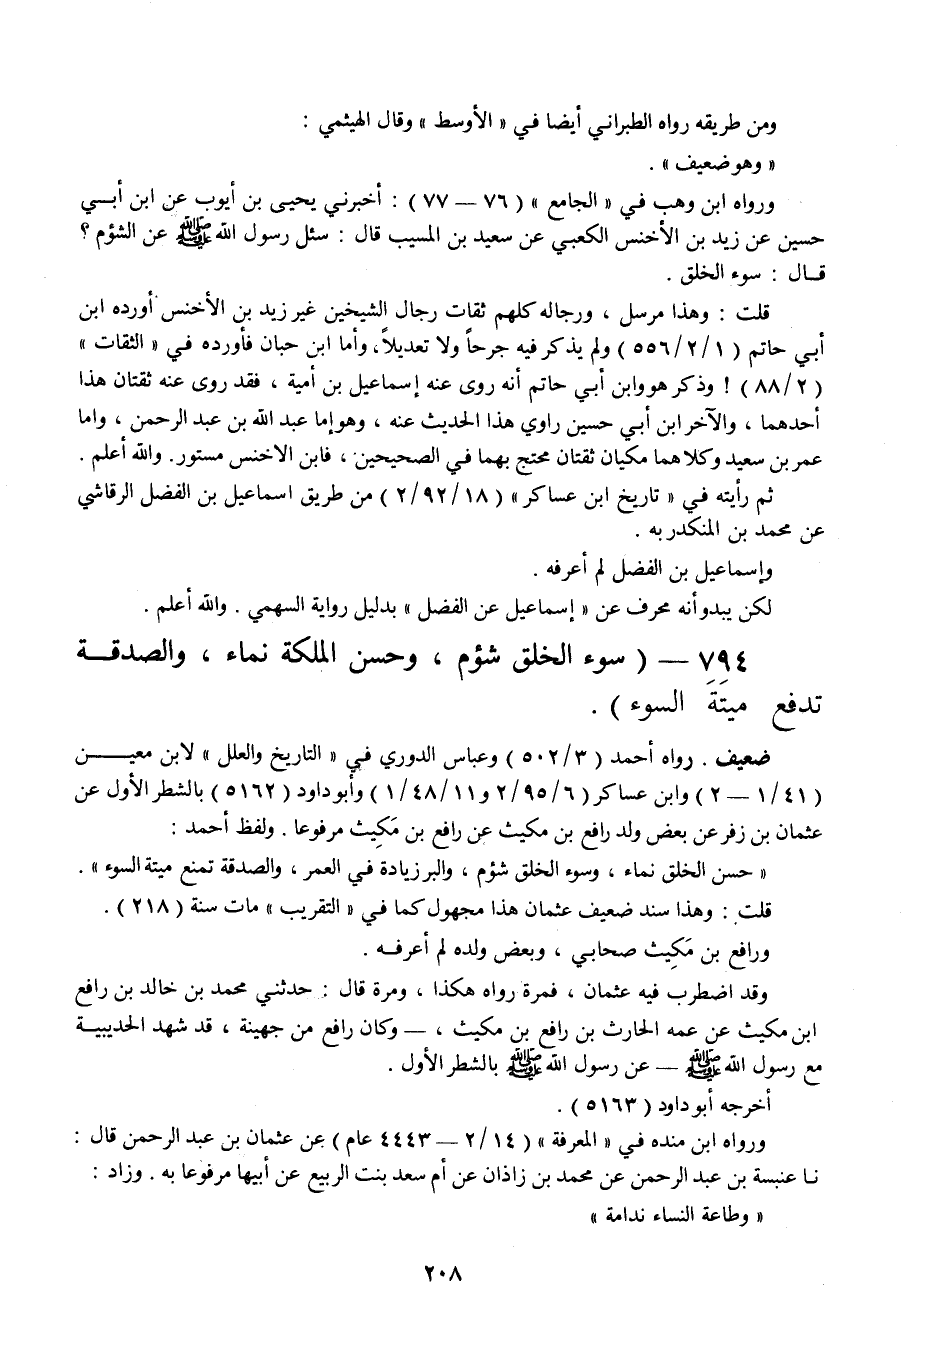 ومن طريقه رواه الطبراني أيضا في « الأوسط » وقال الهيثمي :
« وهو ضعيف » .
ورواه ابن وهب في « الجامع » ( ٧٦ — ٧٧ ) : أخبرني يحيى بن أيوب عن ابن أبي
حسين عن زيد بن الأخنس الكعبي عن سعيد بن المسيب قال : سئل رسول الله ﷺ عن الشؤم ؟
قال : سوء الخلق .
قلت : وهذا مرسل ، ورجاله كلهم ثقات رجال الشيخين غير زيد بن الأخنس أورده ابن
أبي حاتم ( ٥٥٦/٢/١ ) ولم يذكر فيه جرحاً ولا تعديلاً، وأما ابن حبان فأورده في « الثقات »
( ٨٨/٢ ) ! وذكر هو وابن أبي حاتم أنه روى عنه إسماعيل بن أمية ، فقد روى عنه ثقتان هذا
أحدهما ، والآخر ابن أبي حسين راوي هذا الحديث عنه ، وهو إما عبد الله بن عبد الرحمن ، واما
عمر بن سعيد وكلاهما مكيان ثقتان محتج بهما في الصحيحين ، فابن الاخنس مستور. والله أعلم .
ثم رأيته في « تاريخ ابن عساكر » ( ٢/٩٢/١٨ ) من طريق اسماعيل بن الفضل الرقاشي
عن محمد بن المنكدر به .
وإسماعيل بن الفضل لم أعرفه .
لكن يبدو أنه محرف عن « إسماعيل عن الفضل » بدليل رواية السهمي . والله أعلم .
٧٩٤ — ( سوء الخلق شؤم ، وحسن الملكة نماء ، والصدقة
تدفع ميتَةَ السوء ) .
ضعيف . رواه أحمد ( ٥٠٢/٣ ) وعباس الدوري في « التاريخ والعلل » لابن معين
( ١/٤١ — ٢ ) وابن عساكر ( ٢/٩٥/٦ و ١/٤٨/١١ ) وأبو داود ( ٥١٦٢ ) بالشطر الأول عن
عثمان بن زفر عن بعض ولد رافع بن مكيث عن رافع بن مَكِيث مرفوعا . ولفظ أحمد :
« حسن الخلق نماء ، وسوء الخلق شؤم ، والبر زيادة في العمر ، والصدقة تمنع ميتة السوء » .
قلت : وهذا سند ضعيف عثمان هذا مجهول كما في « التقريب » مات سنة ( ٢١٨ ) .
ورافع بن مَكِيث صحابي ، وبعض ولده لم أعرفه .
وقد اضطرب فيه عثمان ، فمرة رواه هكذا ، ومرة قال : حدثني محمد بن خالد بن رافع
ابن مكيث عن عمه الحارث بن رافع بن مكيث ، — وكان رافع من جهينة ، قد شهد الحديبية
مع رسول الله ﷺ — عن رسول الله ﷺ بالشطر الأول .
أخرجه أبو داود ( ٥١٦٣ ) .
ورواه ابن منده في « المعرفة » ( ٢/١٤ — ٤٤٤٣ عام ) عن عثمان بن عبد الرحمن قال :
نا عنبسة بن عبد الرحمن عن محمد بن زاذان عن أم سعد بنت الربيع عن أبيها مرفوعا به . وزاد :
« وطاعة النساء ندامة »
٢٠٨